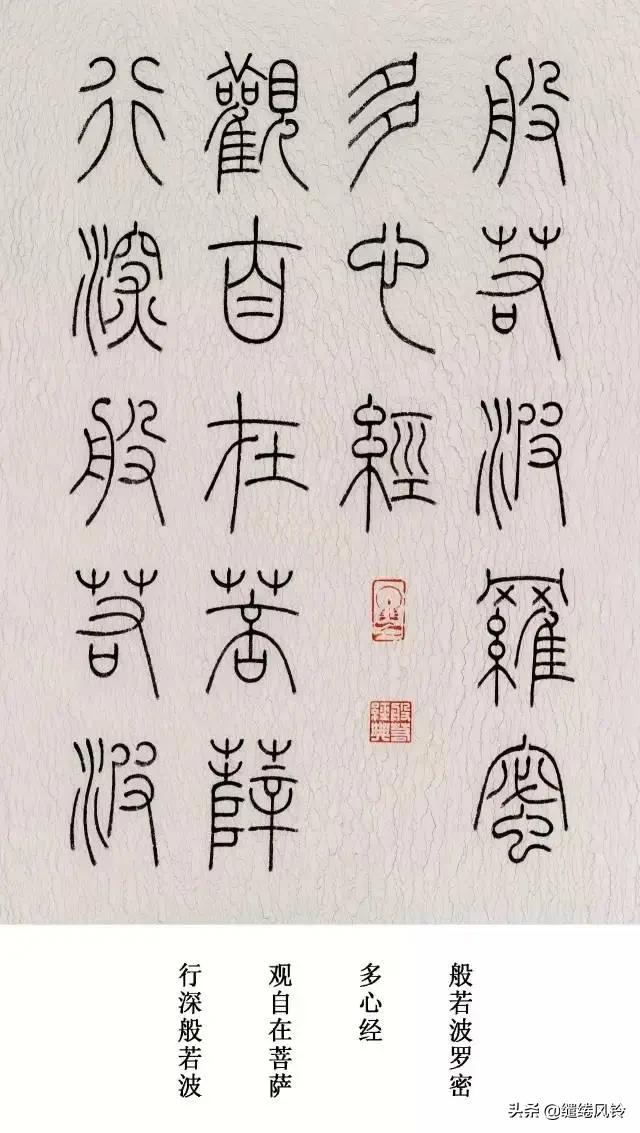 般若波羅蜜
多心經
觀自在菩薩
行深般若波
般若波罗密
多心经
观自在菩萨
行深般若波
头条 @缱绻风铃